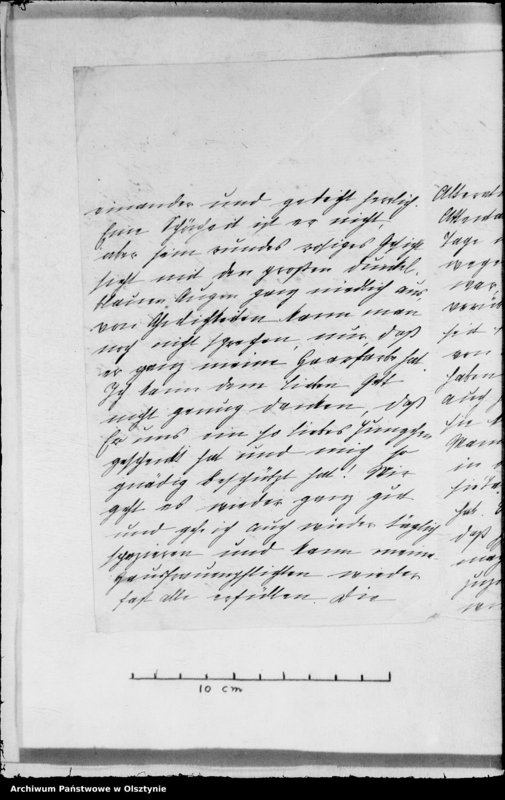 einander und gedeiht herrlich
Eine Schönheit ist er nicht,
aber sein rundes rosiges Gesicht
sieht mit den großen dunkel-
blauen Augen ganz niedlich aus
von Ähnlichkeiten kann man
noch nicht sprechen, nur, daß
er ganz meine Haarfarbe hat.
Ich kann dem lieben Gott
nicht genug danken, daß
Er uns ein so liebes Jungchen
geschenkt hat und mich so
gnädig beschützt hat! Mir
geht es wieder ganz gut
und gehe ich auch wieder täglich
spazieren und kann meine
Hausfrauenpflichten wieder
fast alle erfüllen. Die
Tage
wege
war
von
haben
auch
in
hat
daß
10 cm
Archiwum Państwowe w Olsztynie